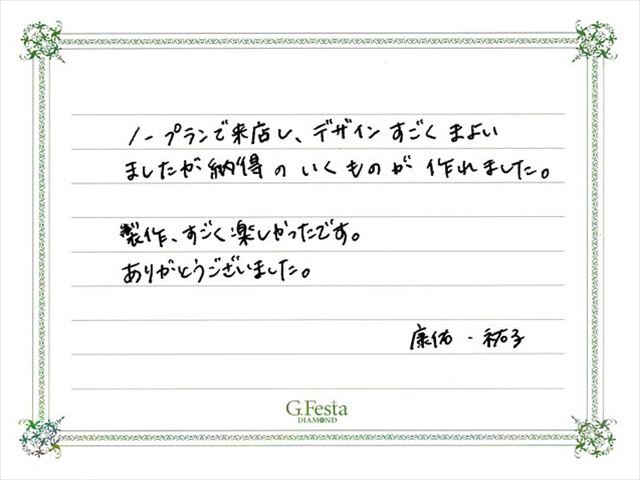 ノープランで来店し、デザインすごくまよい
ましたが納得のいくものが作れました。
製作、すごく楽しかったです。
ありがとうございました。
康佑・祐子
G.Festa
DIAMOND